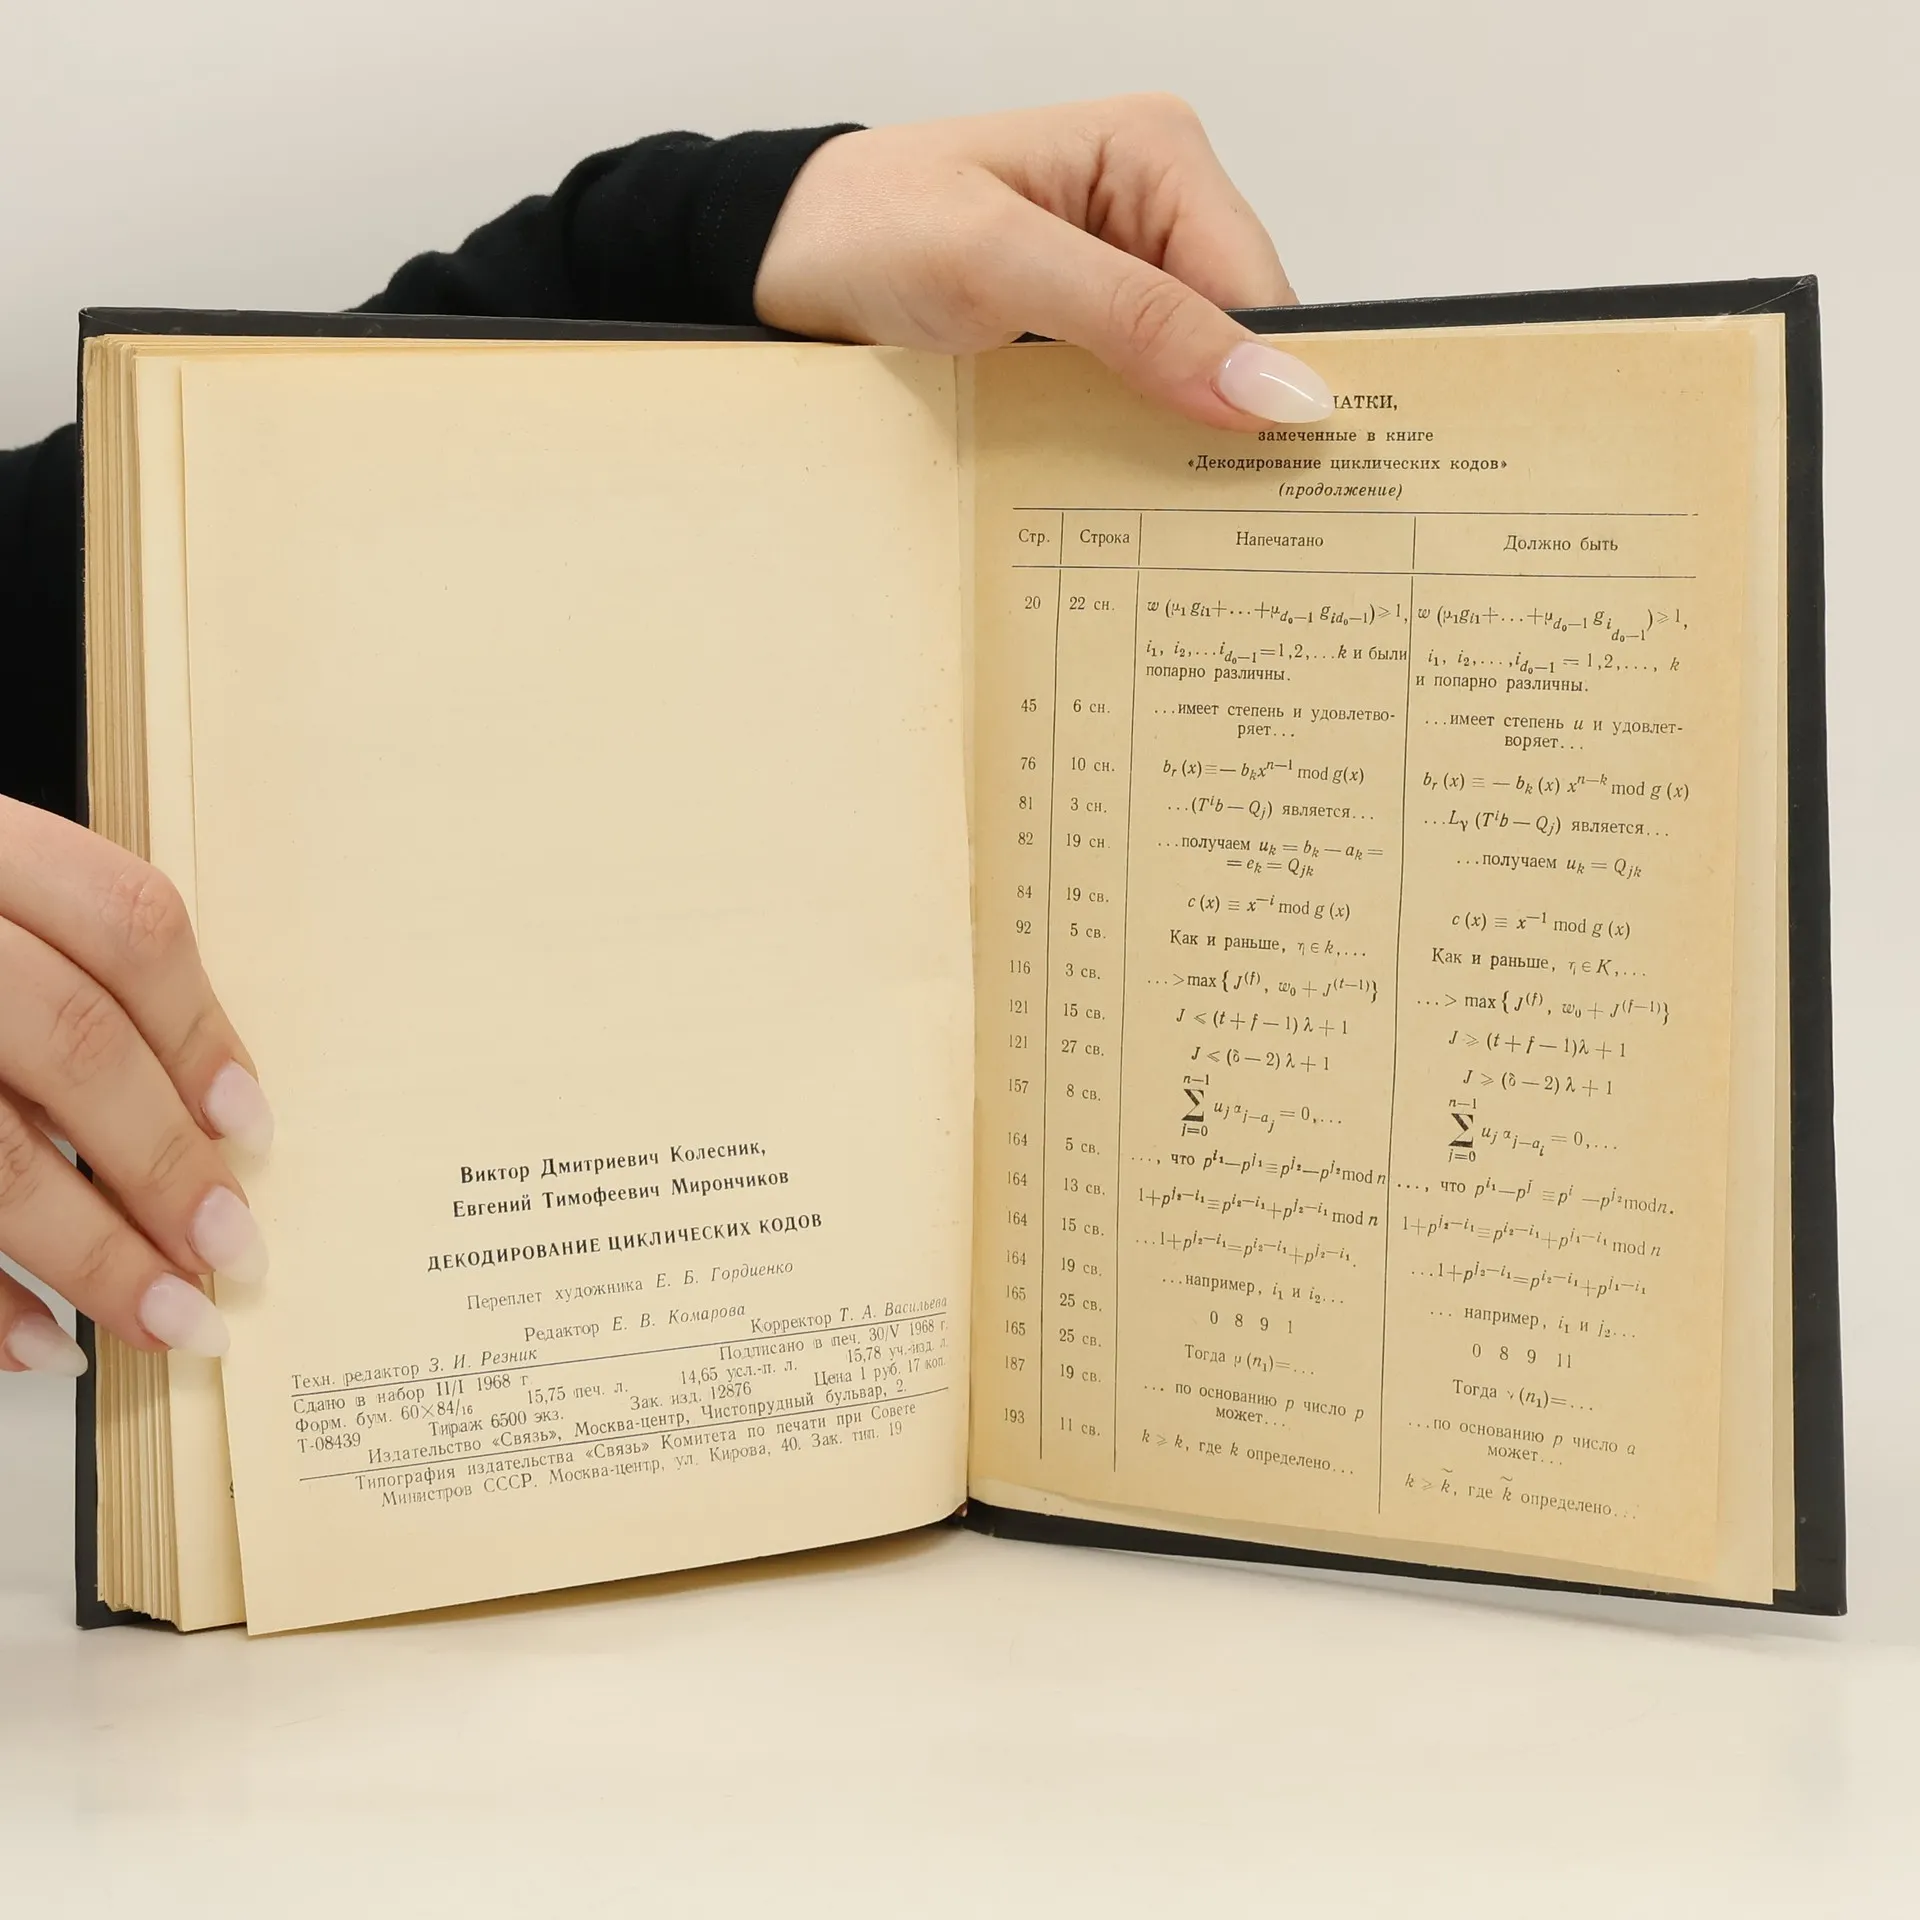 Виктор Дмитриевич Колесник,
Евгений Тимофеевич Мирончиков
ДЕКОДИРОВАНИЕ ЦИКЛИЧЕСКИХ КОДОВ
Переплет художника Е. Б. Гордиенко
Редактор Е. В. Комарова
Техн. редактор З. И. Резник Корректор Т. А. Васильева
Сдано в набор 11/I 1968 г. Подписано в печ. 30/V 1968 г.
Форм. бум. 60×84/16 15,75 печ. л. 14,65 усл.-п. л. 15,78 уч.-изд. л.
Т-08439 Тираж 6500 экз. Зак. изд. 12876 Цена 1 руб. 17 коп.
Издательство «Связь», Москва-центр, Чистопрудный бульвар, 2.
Типография издательства «Связь» Комитета по печати при Совете
Министров СССР. Москва-центр, ул. Кирова, 40. Зак. тип. 19
АТКИ,
замеченные в книге
«Декодирование циклических кодов»
(продолжение)
Стр. Строка Напечатано Должно быть
20 22 сн. w (μ₁ gi1+...+μd₀—1 gid₀—1)⩾1, w (μ₁gi1+...+μd₀—1 gid₀—1)⩾1,
i₁, i₂,...id₀—1=1,2,...k и были i₁, i₂,...,id₀—1 = 1,2,..., k
попарно различны. и попарно различны.
45 6 сн. ...имеет степень и удовлетво- ...имеет степень u и удовлет-
ряет... воряет...
76 10 сн. bᵣ (x)≡— bₖxⁿ⁻¹ mod g(x) bᵣ (x) ≡ — bₖ (x) xⁿ⁻ᵏ mod g (x)
81 3 сн. ...(Tⁱb — Qⱼ) является... ...Lγ (Tⁱb — Qⱼ) является...
82 19 сн. ...получаем uₖ = bₖ — aₖ = ...получаем uₖ = Qjk
= eₖ = Qjk
84 19 св. c (x) ≡ x⁻ⁱ mod g (x) c (x) ≡ x⁻¹ mod g (x)
92 5 св. Как и раньше, η ∈ k,... Как и раньше, η ∈ K,...
116 3 св. ...>max { J⁽ᶠ⁾, w₀ + J⁽ᵗ⁻¹⁾} ...> max { J⁽ᶠ⁾, w₀ + J⁽ᶠ⁻¹⁾}
121 15 св. J ⩽ (t + f — 1) λ + 1 J ⩾ (t + f — 1)λ + 1
121 27 св. J ⩽ (δ — 2) λ + 1 J ⩾ (δ — 2) λ + 1
157 8 св. n—1 ∑ j=0 uⱼ αj—aⱼ = 0,... n—1 ∑ j=0 uⱼ αj—aᵢ = 0,...
164 5 св. ..., что pⁱ¹—pʲ¹≡pⁱ²—pʲ²mod n ..., что pⁱ¹—pʲ ≡pⁱ —pʲ²modn.
164 13 св. 1+pʲ²⁻ⁱ¹≡pⁱ²⁻ⁱ¹+pʲ²⁻ⁱ¹ mod n 1+pʲ²⁻ⁱ¹≡pⁱ²⁻ⁱ¹+pʲ¹⁻ⁱ¹ mod n
164 15 св. ...1+pʲ²⁻ⁱ¹=pⁱ²⁻ⁱ¹+pʲ²⁻ⁱ¹. ...1+pʲ²⁻ⁱ¹=pⁱ²⁻ⁱ¹+pʲ¹⁻ⁱ¹
164 19 св. ...например, i₁ и i₂... ... например, i₁ и j₂...
165 25 св. 0 8 9 1 0 8 9 11
165 25 св. Тогда μ (n₁)=... Тогда ν (n₁)=...
187 19 св. ... по основанию p число p ...по основанию p число a
может... может...
193 11 св. k ⩾ k, где k определено... k ⩾ k̃, где k̃ определено...